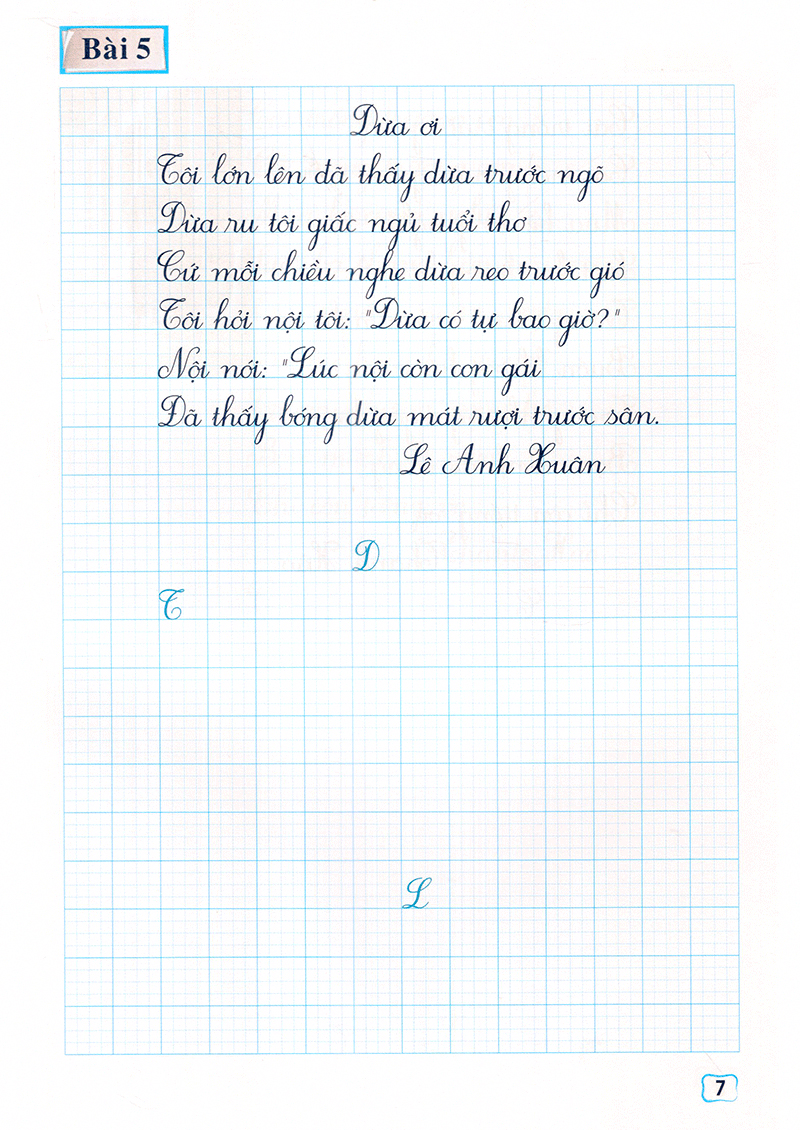 Bài 5
Dừa ơi
Tôi lớn lên đã thấy dừa trước ngõ
Dừa ru tôi giấc ngủ tuổi thơ
Cứ mỗi chiều nghe dừa reo trước gió
Tôi hỏi nội tôi: "Dừa có tự bao giờ?"
Nội nói: "Lúc nội còn con gái
Đã thấy bóng dừa mát rượi trước sân.
Lê Anh Xuân
D
T
L
7